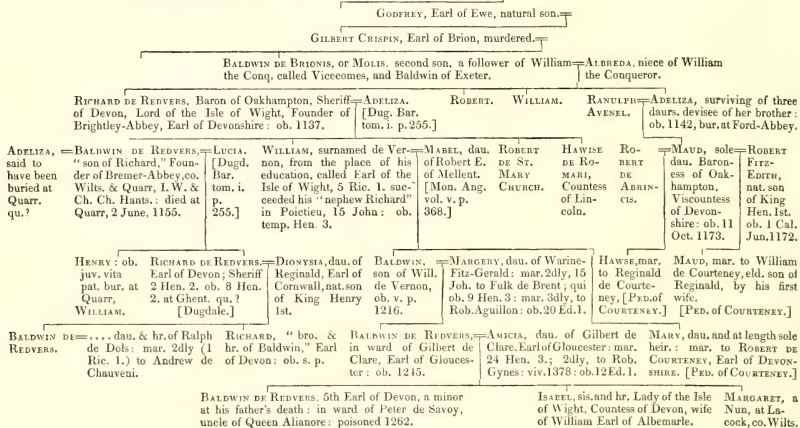 GODFREY, Earl of Ewe, natural son.
GILBERT CRISPIN, Earl of Brion, murdered.
BALDWIN DE BRIONIS, or MOLIS, second son, a follower of William
the Conq. called Vicecomes, and Baldwin of Exeter.
ALBREDA, niece of William
the Conqueror.
RICHARD DE REDVERS, Baron of Oakhampton, Sheriff
of Devon, Lord of the Isle of Wight, Founder of
Brightley-Abbey, Earl of Devonshire: ob. 1137.
ADELIZA.
[Dug. Bar.
tom, i. p. 255.]
ROBERT.
WILLIAM.
RANULPH
AVENEL.
ADELIZA, surviving of three
daurs. devisee of her brother:
ob. 1142, bur. at Ford-Abbey.
ADELIZA,
said to
have been
buried at
Quarr.
qu.?
BALDWIN DE REDVERS,
"son of Richard," Foun-
der of Bremer-Abbey, co.
Wilts. & Quarr, I. W. &
Ch. Ch. Hants.: died at
Quarr, 2 June, 1155.
LUCIA.
[Dugd.
Bar.
tom, i.
p.
255.]
WILLIAM, surnamed de Ver-
non, from the place of his
education, called Earl of the
Isle of Wight, 5 Ric. 1. suc-
ceeded his "nephew Richard"
in Poictieu, 15 John: ob.
temp. Hen. 3.
MABEL, dau.
of Robert E.
of Mellent.
[Mon. Ang.
vol. v. p.
368.]
ROBERT
DE ST.
MARY
CHURCH.
HAWISE
DE RO-
MARI,
Countess
of Lin-
coln.
RO-
BERT
DE
ABRIN-
CIS.
MAUD, sole
dau. Baron-
ess of Oak-
hampton,
Viscountess
of Devon-
shire: ob. 11
Oct. 1173.
ROBERT
FITZ-
EDITH,
nat. son
of King
Hen. 1st.
ob. 1 Cal.
Jun. 1172.
HENRY: ob.
juv. vita
pat. bur. at
Quarr,
WILLIAM.
RICHARD DE REDVERS,
Earl of Devon; Sheriff
2 Hen. 2. ob. 8 Hen.
2. at Ghent. qu.?
[Dugdale.]
DIONYSIA, dau. of
Reginald, Earl of
Cornwall, nat. son
of King Henry
1st.
BALDWIN,
son of Will.
de Vernon,
ob. v. p.
1216.
MARGERY, dau. of Warine-
Fitz-Gerald: mar. 2dly, 15
Joh. to Fulk de Brent; qui
ob. 9 Hen. 3: mar. 3dly, to
Rob. Aguillon: ob. 20 Ed. 1.
HAWSE, mar.
to Reginald
de Courte-
ney, [PED. of
COURTENEY.]
MAUD, mar. to William
de Courteney, eld. son of
Reginald, by his first
wife.
[PED. of COURTENEY.]
BALDWIN DE
REDVERS.
.... dau. & hr. of Ralph
de Dols: mar. 2dly (1
Ric. 1.) to Andrew de
Chauveni.
RICHARD, "bro. &
hr. of Baldwin," Earl
of Devon: ob. s. p.
BALDWIN DE REDVERS,
in ward of Gilbert de
Clare, Earl of Glouces-
ter: ob. 1245.
AMICIA, dau. of Gilbert de
Clare, Earl of Gloucester: mar.
24 Hen. 3.; 2dly, to Rob.
Gynes: viv. 1378: ob. 12 Ed. 1.
MARY, dau. and at length sole
heir.: mar. to ROBERT DE
COURTENEY, Earl of DEVON-
SHIRE. [PED. of COURTENEY.]
BALDWIN DE REDVERS, 5th Earl of Devon, a minor
at his father's death: in ward of Peter de Savoy,
uncle of Queen Alianore: poisoned 1262.
ISABEL, sis. and hr. Lady of the Isle
of Wight, Countess of Devon, wife
of William Earl of Albemarle.
MARGARET, a
Nun, at La-
cock, co. Wilts.